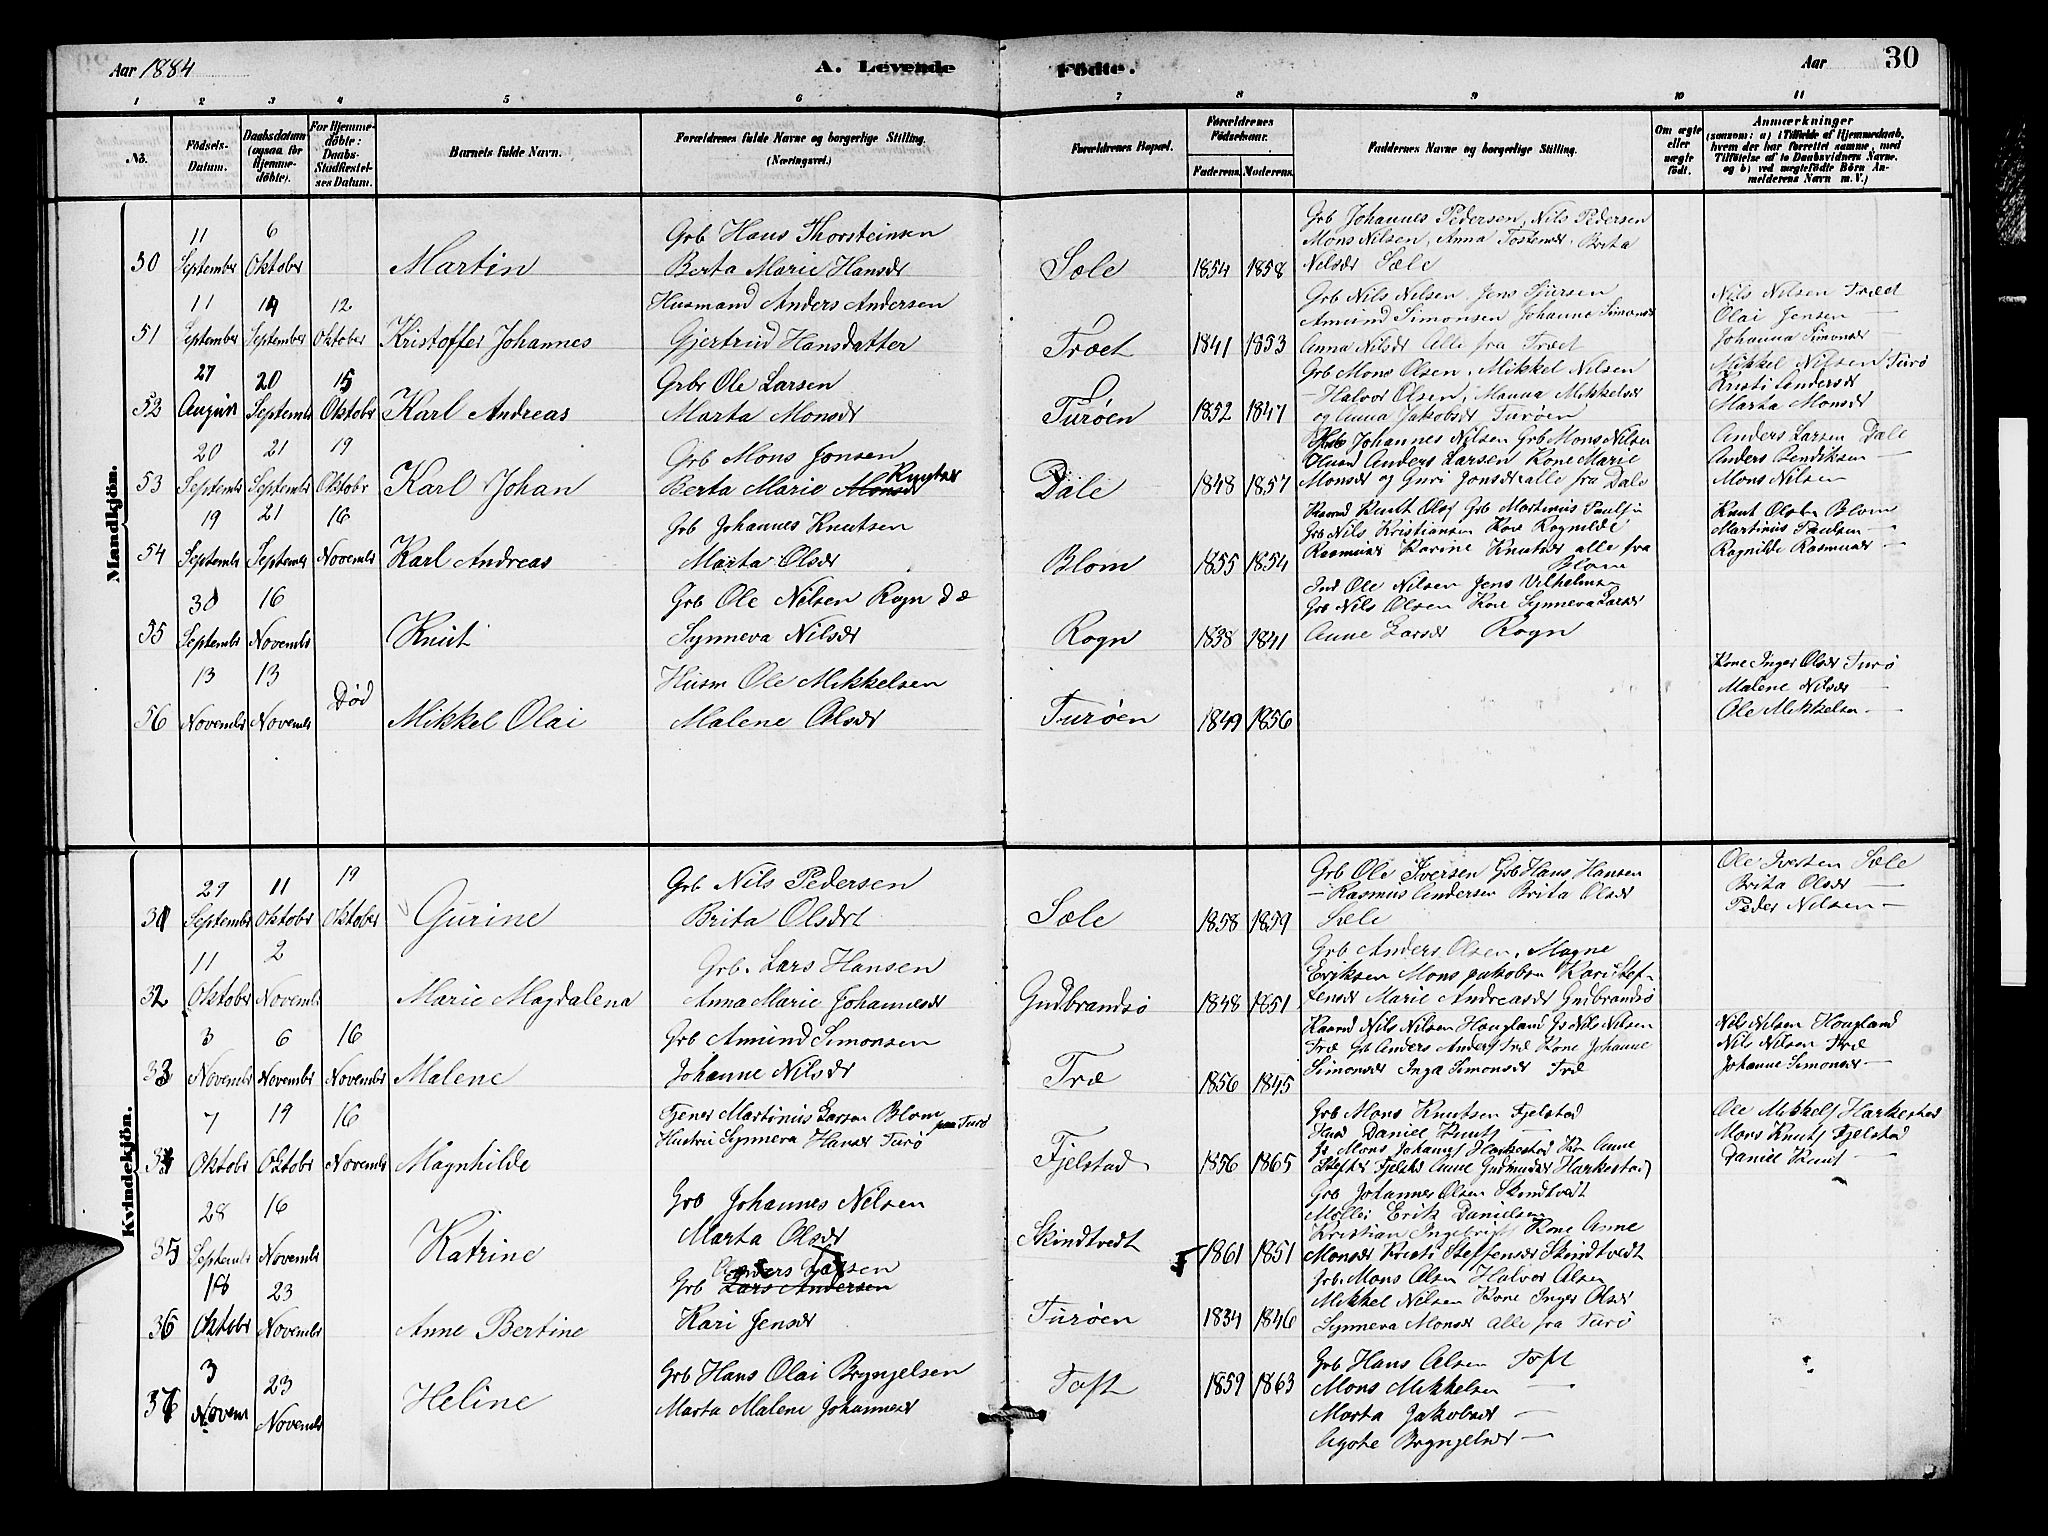 Aar 1884
A. Levende
Födte.
Aar
30
1 2 3 4 5 6 7 8 9 10 11
No.
Födsels-Datum.
Daabsdatum (ogsaa for Hjemme-döbte).
For Hjemme-döbte: Daabs-Stadfæstel-ses Datum.
Barnets fulde Navn.
Forældrenes fulde Navne og borgerlige Stilling. (Næringsvei.)
Forældrenes Bopæl.
Forældrenes Födselsaar.
Faderens. Moderens.
Faddernes Navne og borgerlige Stilling.
Om ægte eller uægte födt.
Anmærkninger
(saasom: a) i Tilfælde af Hjemmedaab, hvem der har forrettet samme, med Tilföielse af to Daabsvidners Navne. og b) ved uægtefödte Börn An-melderens Navn m. V.)
Mandkjön.
50 11 September 6 Oktober Martin
Grb Hans Thorsteinsen
Berta Marie Hansdr
Sæle 1854 1858
Grb Johannes Pedersen, Nils Pedersen
Mons Nilsen, Anna Tostensdr Brita
Nilsdr Sæle
51 11 September 14 September 12 Oktober Kristoffer Johannes
Husmand Anders Andersen
Gjertrud Hansdatter
Træet 1841 1853
Grb Nils Nilsen, Jens Sjursen
Amund Simonsen Johanna Simonsdr
Anna Nilsdr Alle fra Træet
Nils Nilsen Træet
Olai Jensen —
Johanna Simonsdr
52 27 August 20 Septembr 15 Oktobr Karl Andreas
Grbr Ole Larsen
Marta Monsdr
Turøen 1852 1847
Grb Mons Olsen, Mikkel Nilsen
— Halvor Olsen, Manna Mikkelsdr
og Anna Jakobsdr Turøen
Mikkel Nilsen Turø
Kristi Andersdr
Marta Monsdr
53 20 Septembr 21 Septembr 19 Oktobr Karl Johan
Grb Mons Jonsen
Berta Marie Monsdr Knutsdr
Dale 1848 1857
Johannes Nilsen Grb Mons Nilsen
Husd Anders Larsen Kone Marie
Monsdr og Guri Jonsdr alle fra Dale
Anders Larsen Dale
Anders Hendriksen —
Mons Nilsen
54 19 Septembr 21 Septembr 16 Novembr Karl Andreas
Grb Johannes Knutsen
Marta Olsdr
Blom 1855 1854
Knut Olss Grb Martinus Paulsen
Grb Nils Kristiansen Kone Ragnilde
Rasmusdr Karine Knutsdr alle fra
Blom
Knut Olsen Blom
Martinus Paulsen —
Ragnilde Rasmusdr —
55 30 Septembr 16 Novembr Knut
Grb Ole Nilsen Rogn
Synneva Nilsdr
Rogn 1838 1841
Ole Nilsen Jens Vilhelmsen
Grb Nils Olsen Kone Synneva Larsdr
Anne Larsdr Rogn
56 13 Novembr 13 Novembr Død Mikkel Olai
Husm Ole Mikkelsen
Malene Olsdr
Turøen 1849 1856
Kone Inger Olsdr Turø
Malene Nilsdr —
Ole Mikkelsen —
Kvindekjön.
31 29 Septembr 11 Oktobr 19 Oktober Gurine
Grb Nils Pedersen
Brita Olsdr
Sæle 1858 1859
Grb Ole Iversen Grb Hans Hansen
— Rasmus Andersen Brita Olsdr
Sæle
Ole Iversen Sæle
Brita Olsdr —
Peder Nilsen —
32 11 Oktober 2 Novembr Marie Magdalena
Grb. Lars Hansen
Anna Marie Johannesdr
Gudbrandsø 1848 1851
Grb Anders Olsen, Magne
Eriksen Mons Jakobsen Kari Stef-
fensdr Marie Andreasdr Gudbrandsø
33 3 Novembr 6 Novembr 16 Novembr Malene
Grb Amund Simonsen
Johanne Nilsdr
Træ 1856 1845
Nils Nilsen Hougland Gr Nils Nilsen
Træ Grb Anders Anders Træ Kone Johanne
Simonsdr Inga Simonsdr Træ
Nils Nilsen Hougland
Nils Nilsen Træ
Johanne Simonsdr —
34 7 Oktobr 19 Oktobr 16 Novembr Magnhilde
Tjener Martinius Larsen Blom
Hustru Synneva Hansdr Turø
Fjelstad 1856 1865
Grb Mons Knutsen Fjelstad
Husd Daniel Knuts —
Gr Mons Johans Harkestad Kone Anne
Fjelstd Anne Gudmundsdr Harkestad
Ole Mikkels Harkestad
Mons Knuts Fjelstad
Daniel Knuts —
35 28 Septembr 16 Novembr Katrine
Grb Johannes Nilsen
Marta Olsdr
Skindtvedt 1861 1851
Grb Johannes Olsen Skindtvedt
Erik Danielsen
Kristian Ingebrigts Kone Anne
Monsdr Kristi Steffensdr Skindtvedt
36 18 Oktobr 23 Novembr Anne Bertine
Grb Lars Andersen Anders Larsen
Kari Jensdr
Turøen 1834 1846
Grb. Mons Olsen Halvor Olsen
Mikkel Nilsen Kone Inger Olsdr
Synneva Monsdr alle fra Turø
37 3 Novem 23 Novembr Heline
Grb Hans Olai Brynjelsen
Marta Malene Johannesdr
Toft 1859 1863
Grb Hans Olsen Toft
Mons Mikkelsen —
Marta Jakobsdr —
Agote Brynjelsdr —